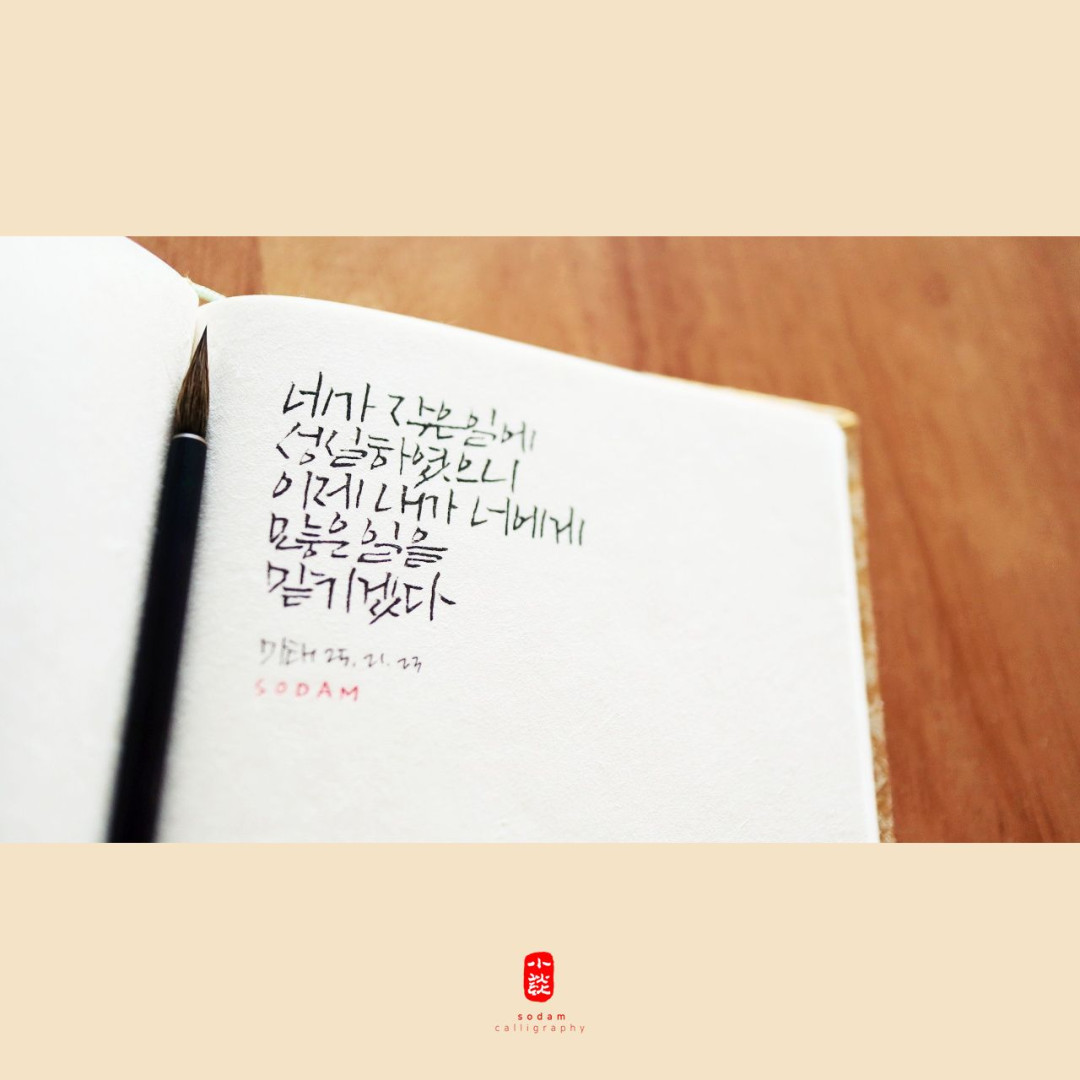 네가 작은일에
성실하였으니
이제 내가 너에게
많은 일을
맡기겠다
마태 25. 21. 23
SODAM
小
sodam
calligraphy